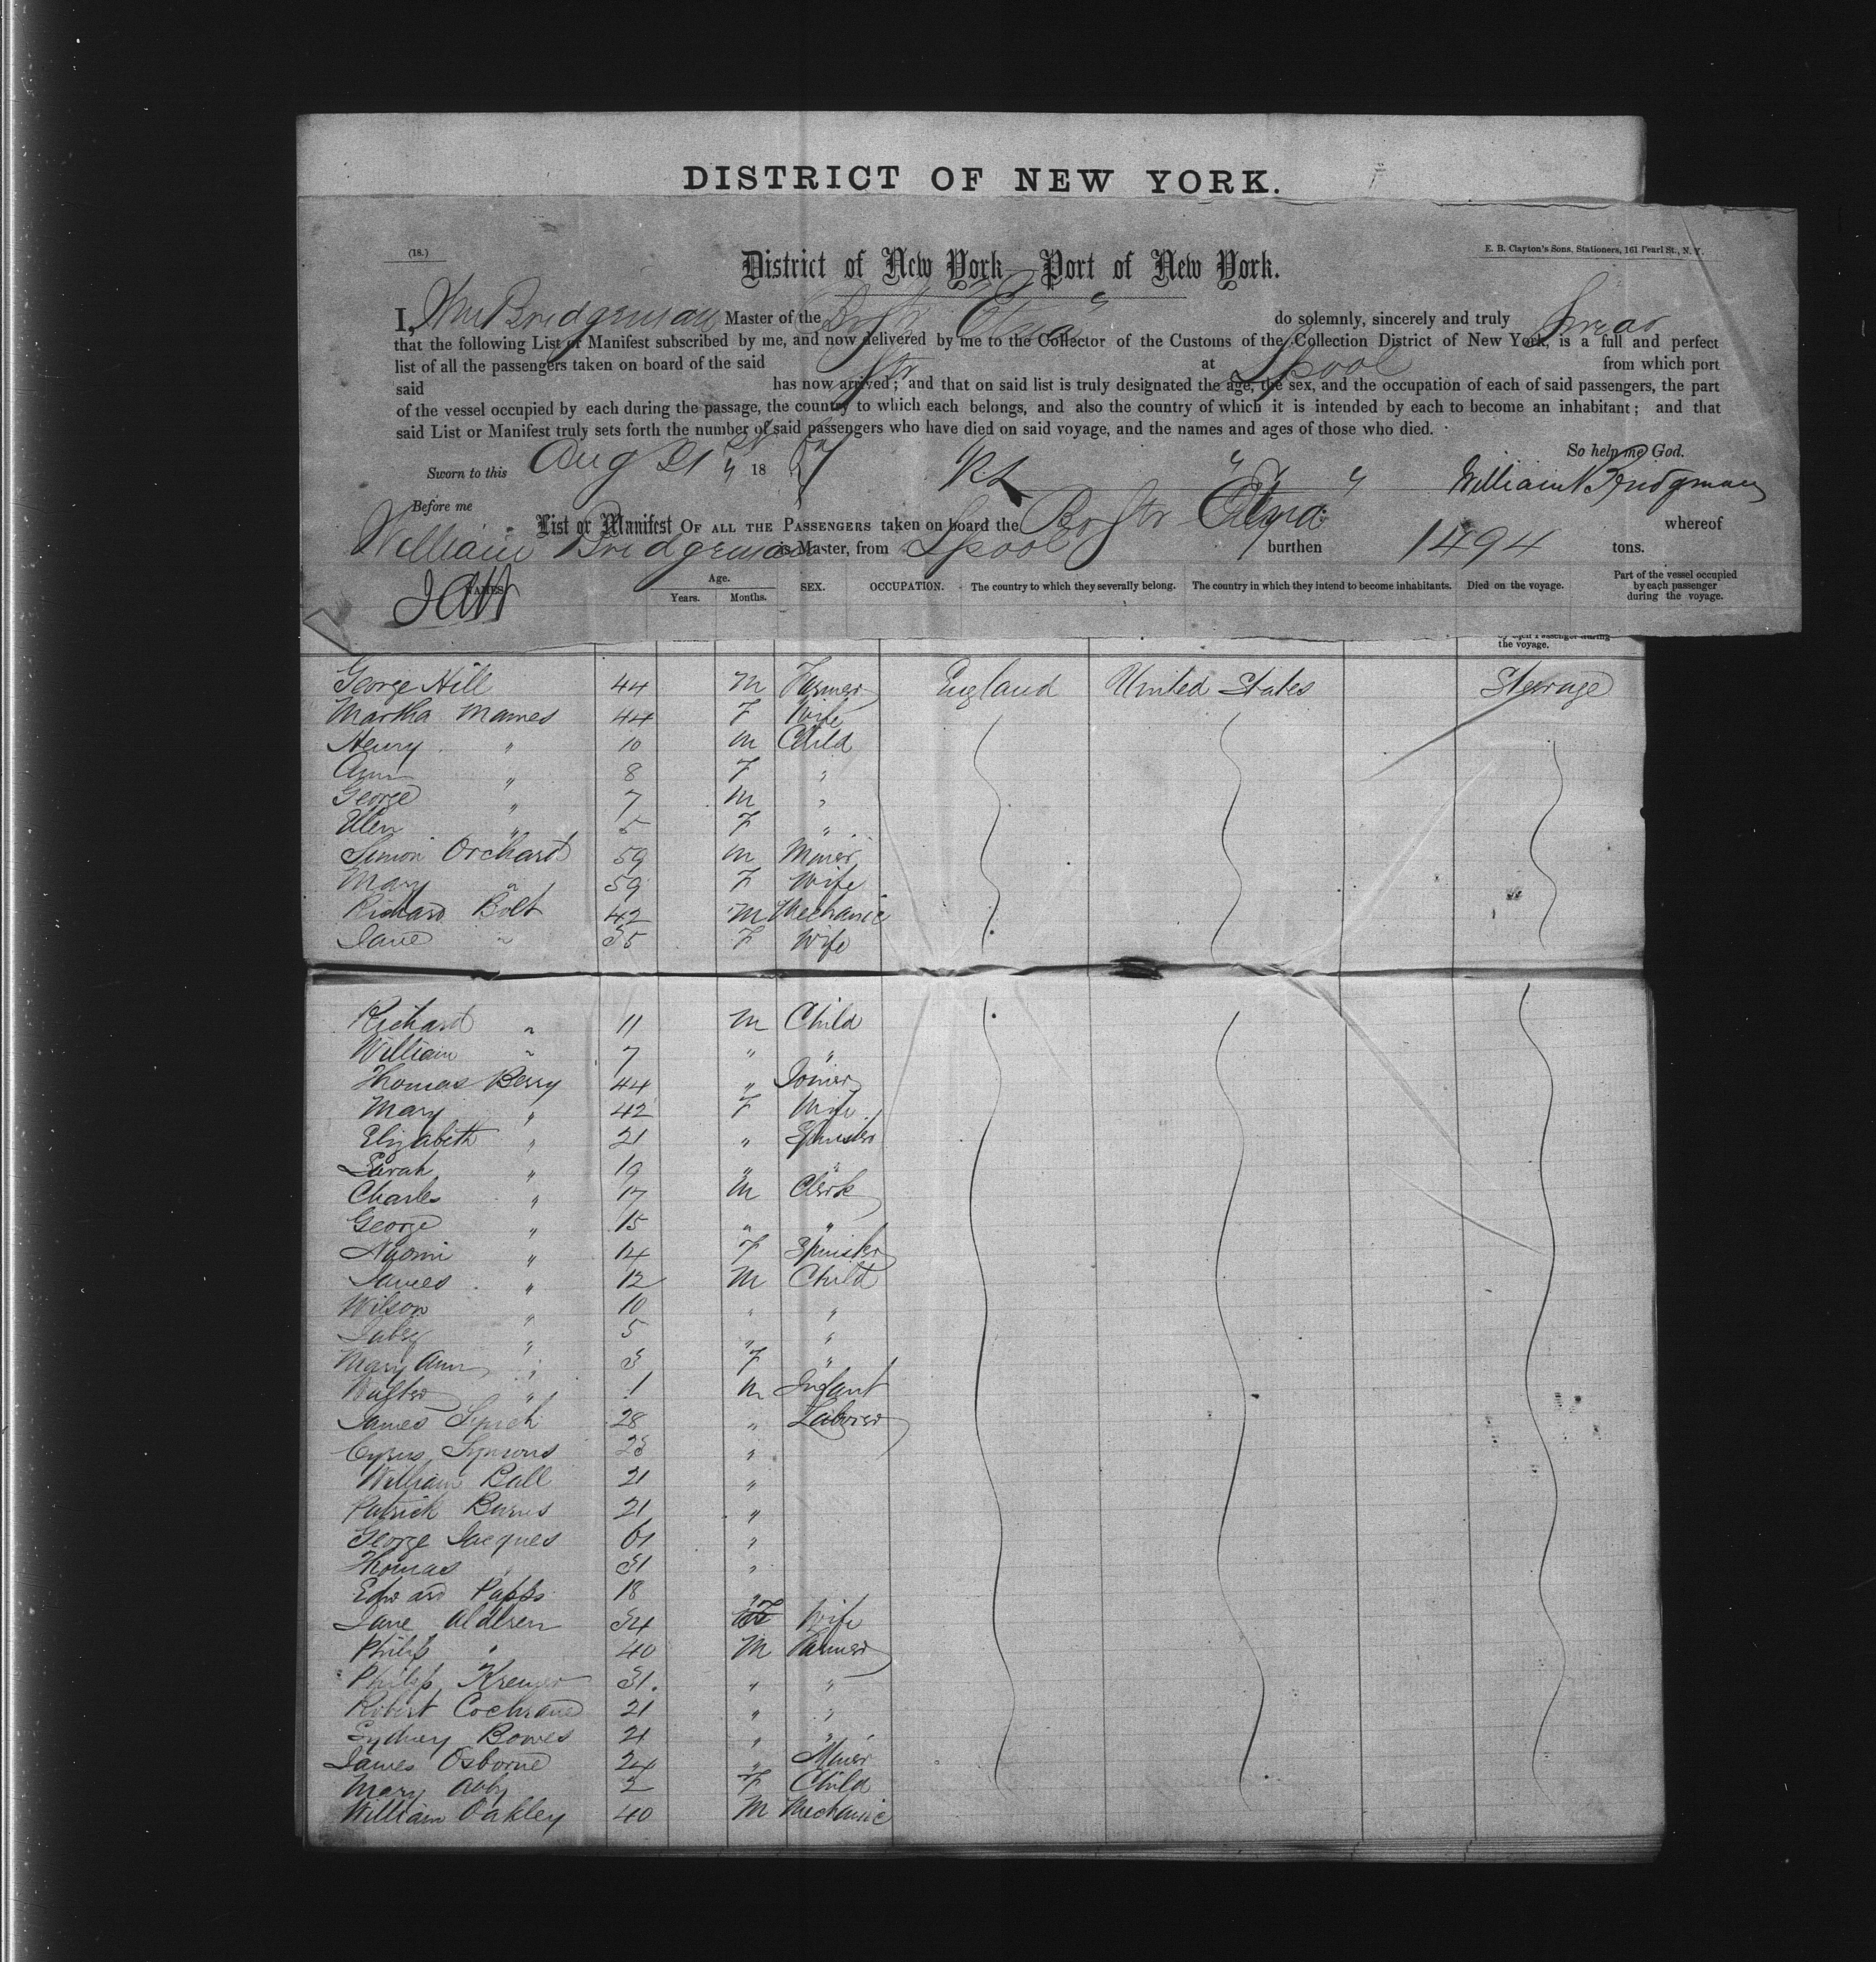 DISTRICT OF NEW YORK.
(18.)
E. B. Clayton's Sons, Stationers, 161 Pearl St., N. Y.
District of New York—Port of New York.
I, Wm Bridgeman Master of the Br Str "Etna" do solemnly, sincerely and truly Swear
that the following List or Manifest subscribed by me, and now delivered by me to the Collector of the Customs of the Collection District of New York, is a full and perfect
list of all the passengers taken on board of the said Str at Lpool from which port
said has now arrived; and that on said list is truly designated the age, the sex, and the occupation of each of said passengers, the part
of the vessel occupied by each during the passage, the country to which each belongs, and also the country of which it is intended by each to become an inhabitant; and that
said List or Manifest truly sets forth the number of said passengers who have died on said voyage, and the names and ages of those who died.
So help me God.
Sworn to this Aug 21st 18 William Bridgman
Before me
List or Manifest OF ALL THE PASSENGERS taken on board the Br Str Etna whereof
William Bridgeman is Master, from Lpool burthen 1494 tons.
NAMES. Age. Years. Months. SEX. OCCUPATION. The country to which they severally belong. The country in which they intend to become inhabitants. Died on the voyage. Part of the vessel occupied by each passenger during the voyage.
by each Passenger during
the voyage.
George Hill 44 M Farmer England United States Steerage
Martha Mames 44 F Wife
Henry " 10 M Child
Ann " 8 F "
George " 7 M "
Ellen " 5 F "
Simon Orchard 59 M Miner
Mary " 59 F Wife
Richard Bolt 42 M Mechanic
Jane " 35 F Wife
Richard " 11 M Child
William " 7 " "
Thomas Berry 44 " Joiner
Mary " 42 F Wife
Elizabeth " 21 " Spinster
Sarah " 19 " "
Charles " 17 M Clerk
George " 15 " "
Naomi " 14 F Spinster
James " 12 M Child
Wilson " 10 " "
" 5 " "
Mary Ann " 3 F "
Walter " 1 M Infant
James Lynch 28 " Laborer
Cyrus Symons 23 "
William Ball 21 "
Patrick Burns 21 "
George Jacques 61 "
Thomas " 31 "
Edward Papps 18 "
Jane Aldersen 34 F Wife
Philip " 40 M Farmer
Philip Kreuzer 31 " "
Robert Cochrane 21 " "
Sydney Bowes 21 " "
James Osborne 24 " Miner
Mary Abby 2 F Child
William Oakley 40 M Mechanic